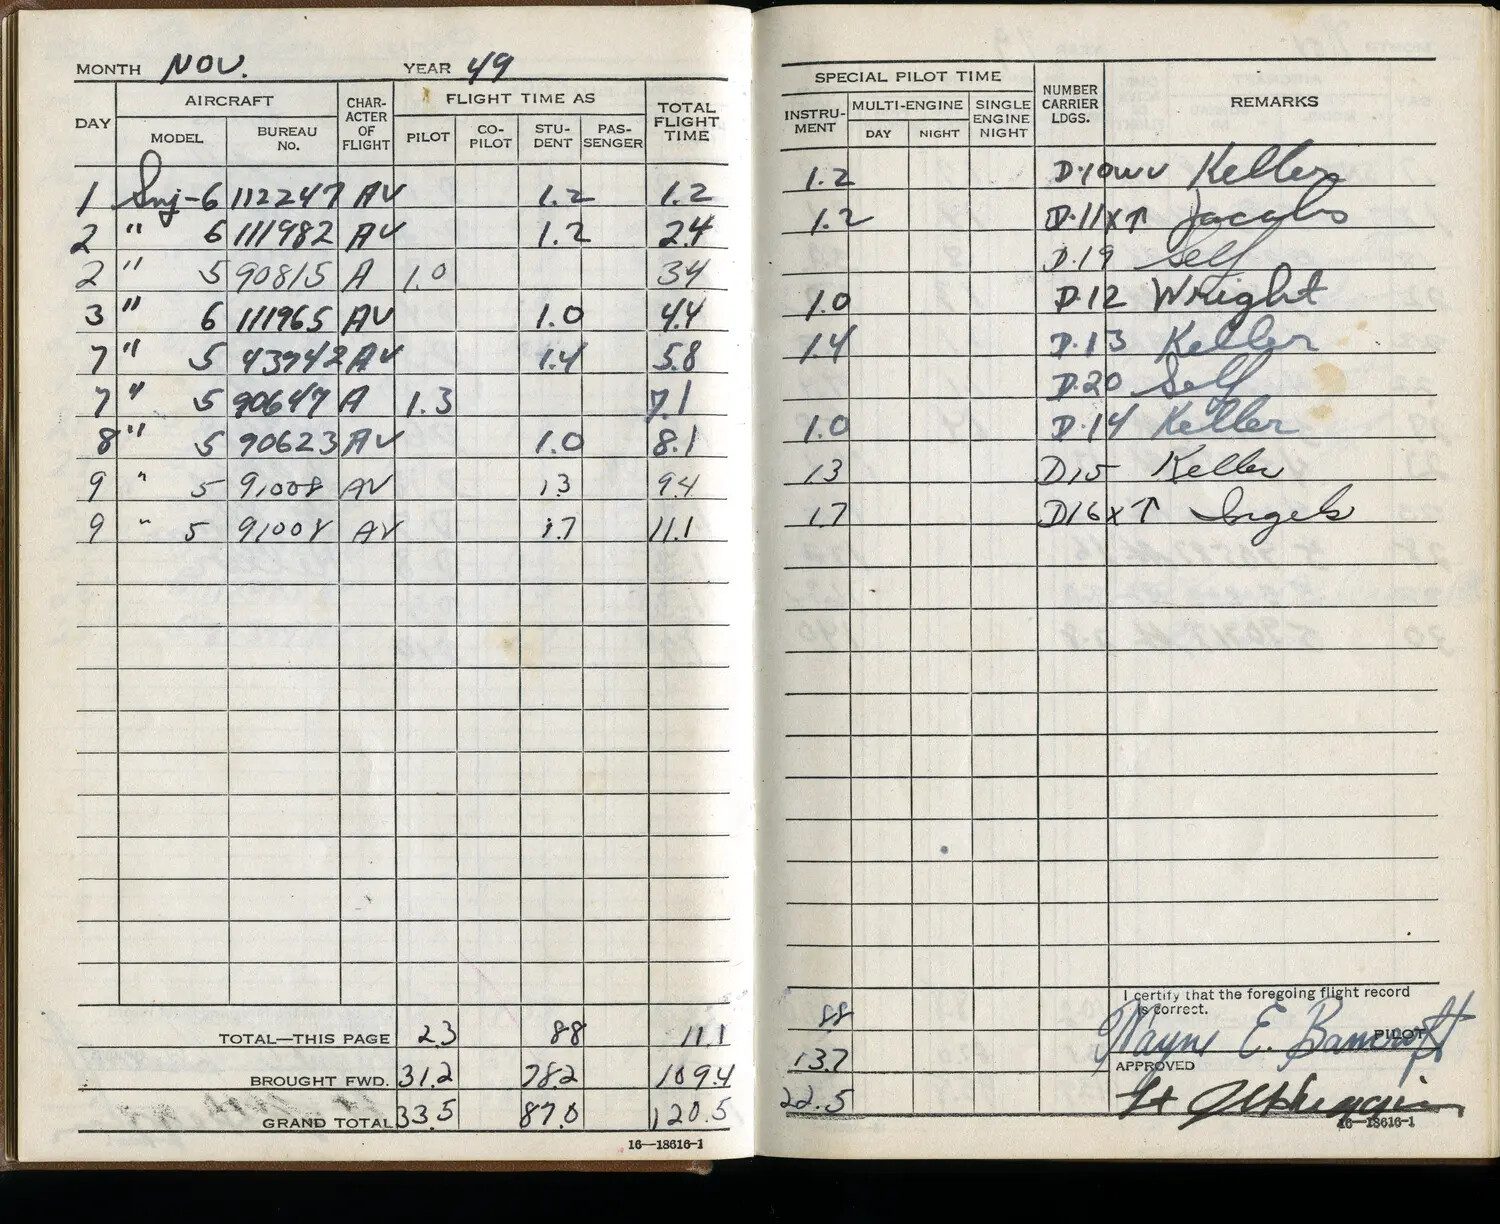 MONTH NOV. YEAR 49
DAY AIRCRAFT CHAR-ACTER OF FLIGHT FLIGHT TIME AS TOTAL FLIGHT TIME
MODEL BUREAU No. PILOT CO-PILOT STU-DENT PAS-SENGER
1 Snj-6 112247 AV 1.2 1.2
2 " 6 111982 AV 1.2 2.4
2 " 5 90815 A 1.0 34
3 " 6 111965 AV 1.0 4.4
7 " 5 43742 AV 1.4 5.8
7 " 5 90647 A 1.3 7.1
8 " 5 90623 AV 1.0 8.1
9 " 5 91008 AV 13 94
9 " 5 91008 AV 1.7 11.1
TOTAL—THIS PAGE 2.3 88 11.1
BROUGHT FWD. 31.2 78.2 109.4
GRAND TOTAL 33.5 87.0 120.5
16—18616-1
SPECIAL PILOT TIME NUMBER CARRIER LDGS. REMARKS
INSTRU-MENT MULTI-ENGINE SINGLE ENGINE NIGHT
DAY NIGHT
1.2 D.10wv Keller
1.2 D.11x↑ Jacobs
D.19 Self
1.0 D.12 Wright
1.4 D.13 Keller
D.20 Self
1.0 D.14 Keller
13 D15 Keller
1.7 D16x↑ Ingels
I certify that the foregoing flight record is correct.
88
Wayne E. Bancroft PILOT
13.7
APPROVED
22.5
Lt
16—18616-1